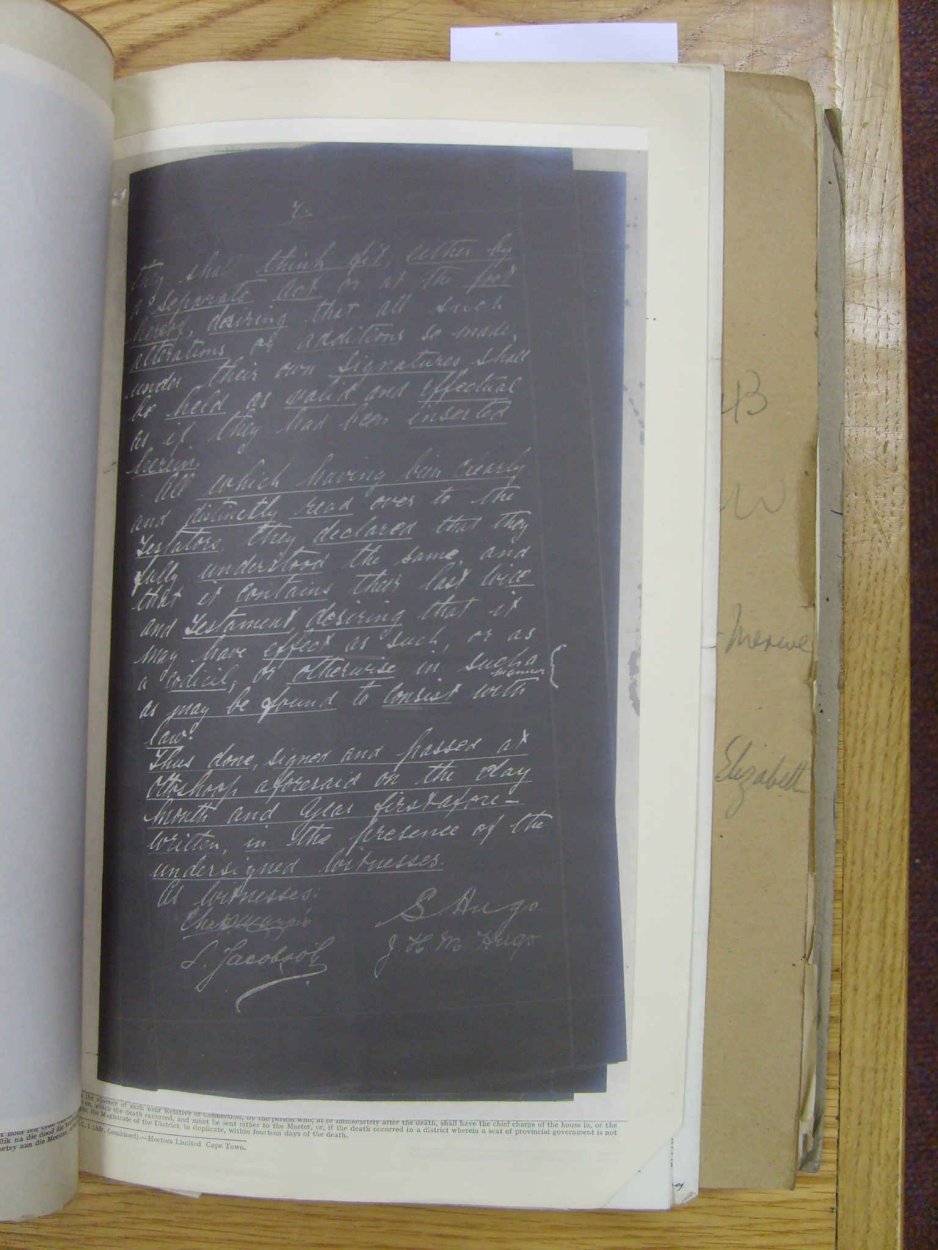 7.
they shall think fit, either by
a separate act or at the foot
hereof, desiring that all such
alterations or additions so made,
under their own signatures shall
be held as valid and effectual
as if they had been inserted
herein.
All which having been clearly
and distinctly read over to the
Testators they declared that they
fully understood the same, and
that it contains their last will
and Testament desiring that it
may have effect as such, or as
a Codicil, or otherwise in such a
manner
as may be found to consist with
law.
Thus done, signed and passed at
Ottoshoop aforesaid on the day
month and year first afore-
written, in the presence of the
undersigned witnesses.
As witnesses:
S Hugo
J H M Hugo
S. Jacobsohn
43
W
Merwe
Elizabeth
the absence of such near Relative or Connection, by the person who, at or immediately after the death, shall have the chief charge of the house in, or the
which the death occurred, and must be sent either to the Master, or, if the death occurred in a district wherein a seat of provincial government is not
the Magistrate of the District, in duplicate, within fourteen days of the death.
(Combined).—Hortors Limited Cape Town.